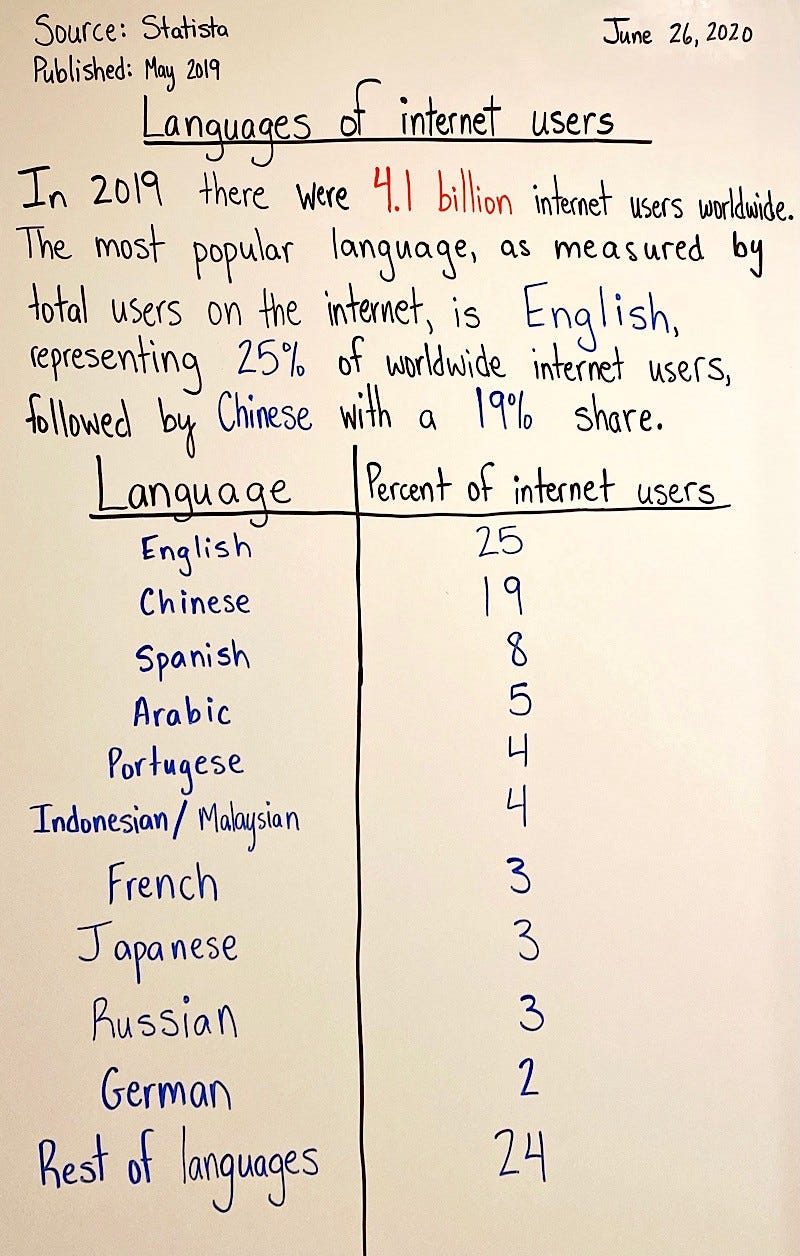 Source: Statista
June 26, 2020
Published: May 2019
Languages of internet users
In 2019 there were 4.1 billion internet users worldwide.
The most popular language, as measured by
total users on the internet, is English,
representing 25% of worldwide internet users,
followed by Chinese with a 19% share.
Language Percent of internet users
English 25
Chinese 19
Spanish 8
Arabic 5
Portugese 4
Indonesian/Malaysian 4
French 3
Japanese 3
Russian 3
German 2
Rest of languages 24